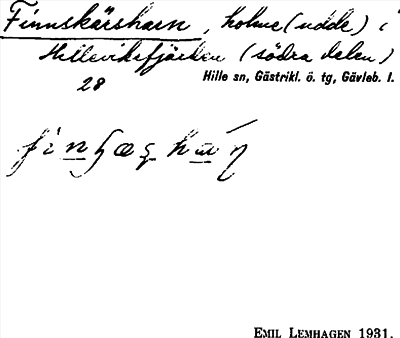 Finnskärsharn, holme (udde) i
Hilleviksfjärden (södra delen)
Hille sn, Gästrikl. ö. tg, Gävleb. l.
28
EMIL LEMHAGEN 1931.